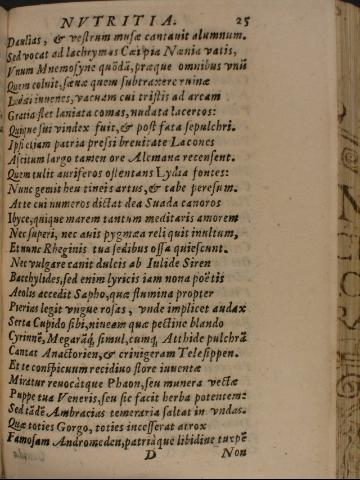 NVTRITIA. 25
Daulias, & vestrum musæ cantauit alumnum.
Sed vocat ad lachrymas Cæi pia Nænia vatis,
Vnum Mnemosyne quōdā, præque omnibus vnū
Quem coluit, sæuæ quem subtraxere ruinæ
Lædæi iuuenes, vacuam cui tristis ad arcam
Gratia flet laniata comas, nudata lacertos:
Quique sui vindex fuit, & post fata sepulchri.
Ipsi etiam patria pressi breuitate Lacones
Ascitum largo tamen ore Alcmana recensent.
Quem tulit auriferos ostentans Lydia fontes:
Nunc gemit heu tineis artus, & tabe peresum.
At te cui numeros dictat dea Suada canoros
Ibyce, quique marem tantum meditaris amorem
Nec superi, nec auis pygmæa reliquit inultum,
Et nunc Rheginis tua sedibus ossa quiescunt.
Nec vulgare canit dulcis ab Iulide Siren
Bacchylides, sed enim lyricis iam nona poëtis
Aeolis accedit Sapho, quæ flumina propter
Pierias legit vngue rosas, vnde implicet audax
Serta Cupido sibi, niueam quæ pectine blando
Cyrinnē, Megarāq;, simul, cumq; Atthide pulchrā
Cantat Anactorien, & crinigeram Telesippen.
Et te conspicuum recidiuo flore iuuentæ
Miratur reuocátque Phaon, seu munera vectæ
Puppe tua Veneris, seu sic facit herba potentem:
Sed tādē Ambracias temeraria saltat in vndas.
Quæ toties Gorgo, toties incesserat atrox
Famosam Andromeden, patriáque libidine turpē
D Non